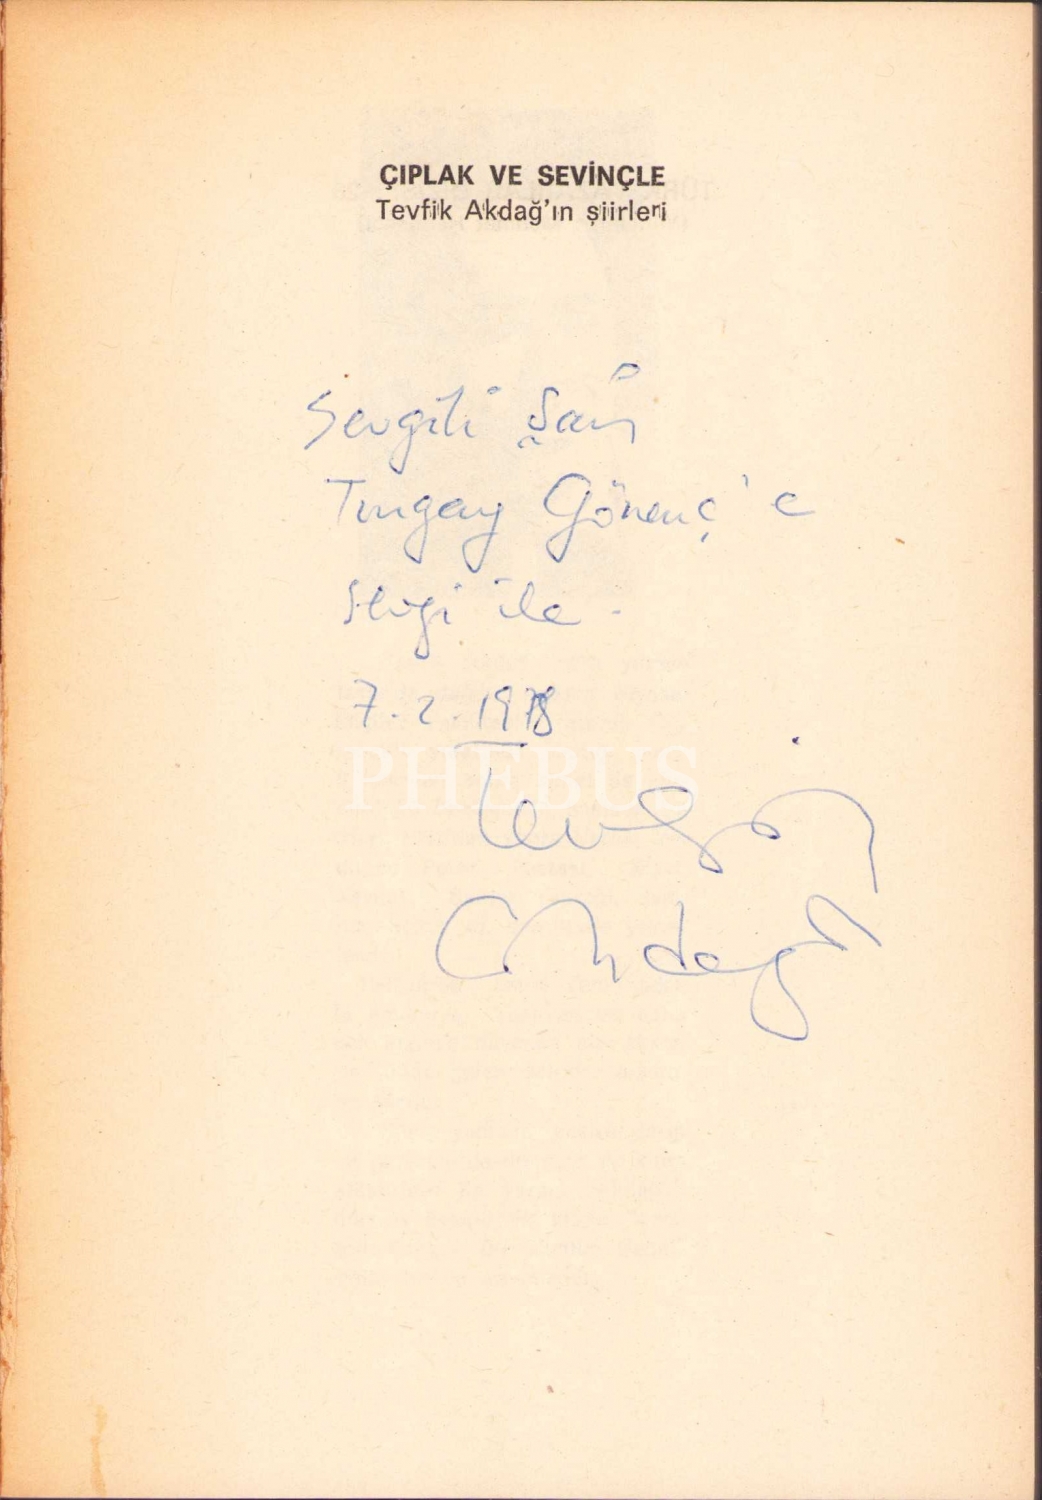 ÇIPLAK VE SEVİNÇLE
Tevfik Akdağ'ın şiirleri
Sevgili Şair
Tungay Gönenç'e
sevgi ile.
7.2.1978
PHEBUS
Tevfik
Akdağ